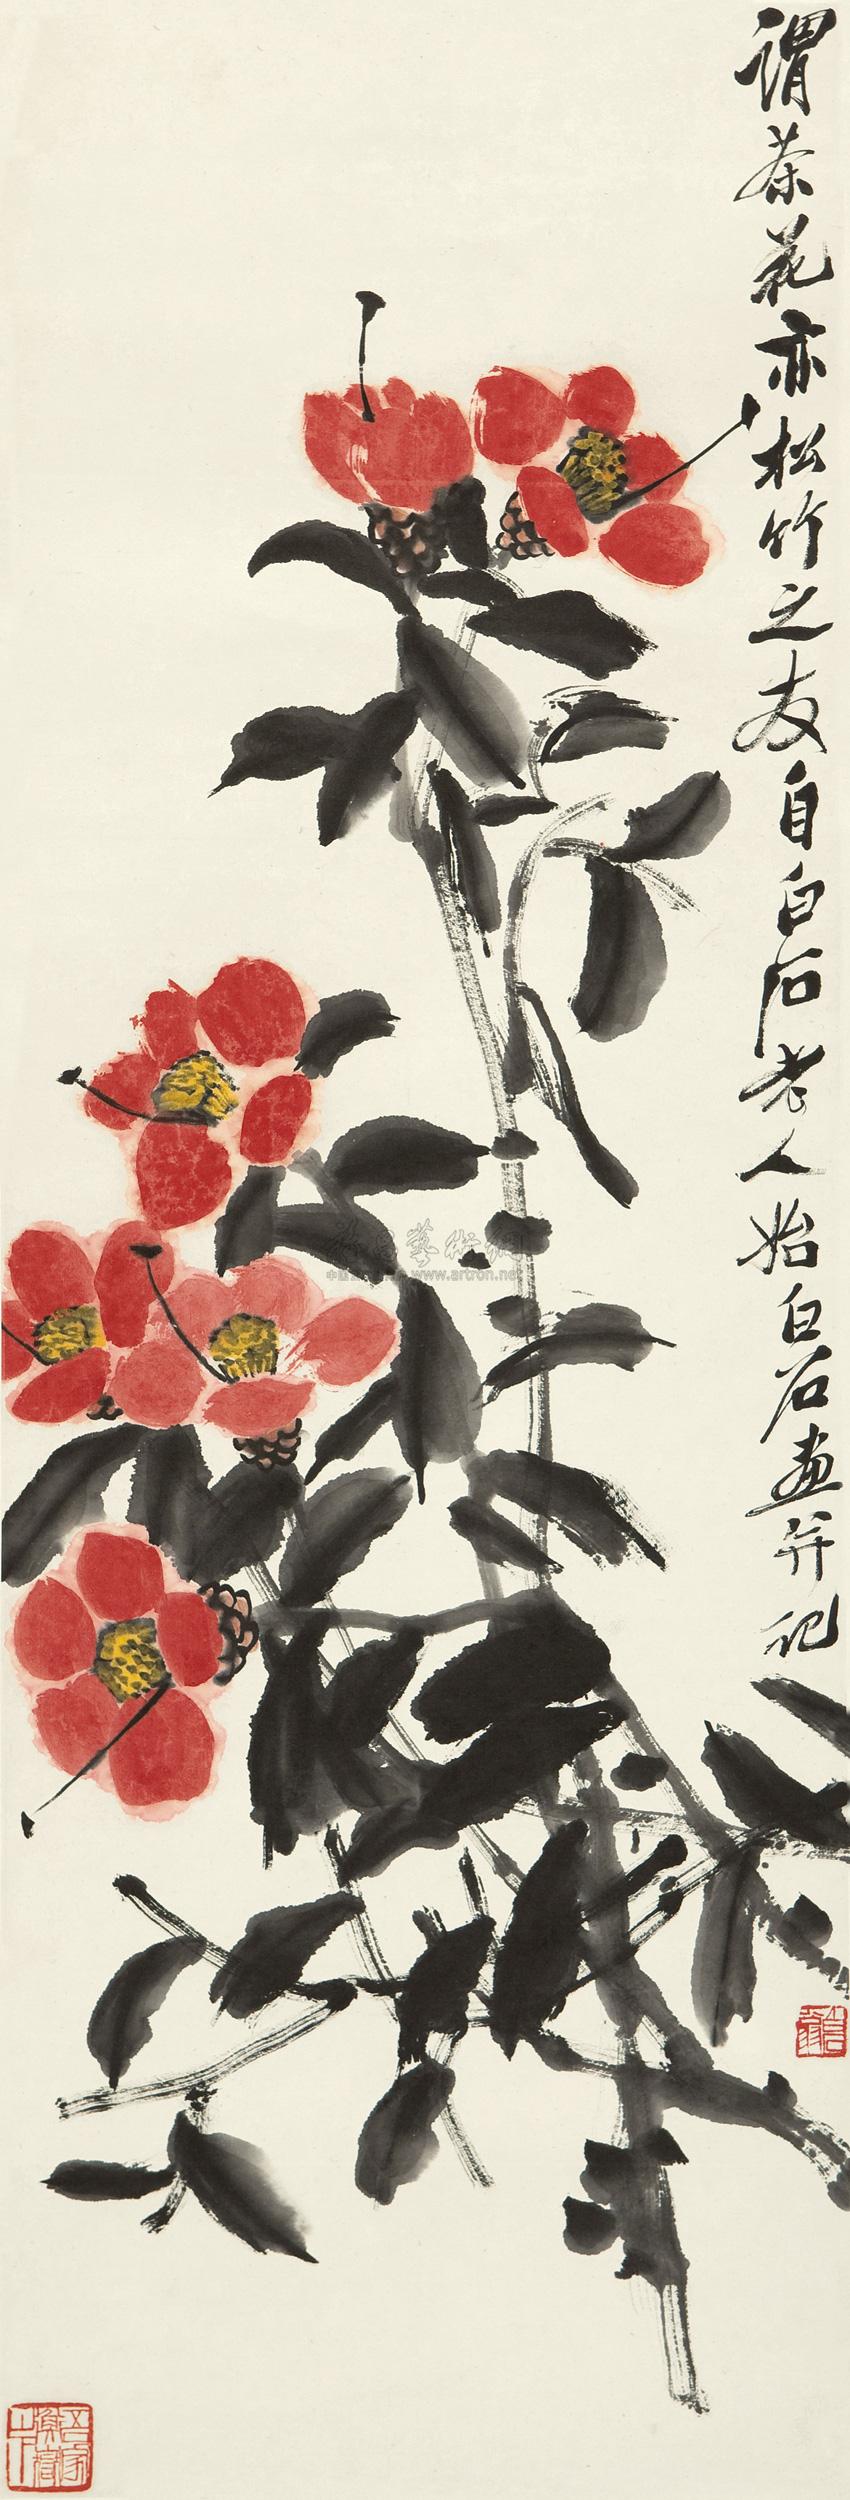 谓茶花亦松竹之友自白石老人始白石画并记
www.artron.net